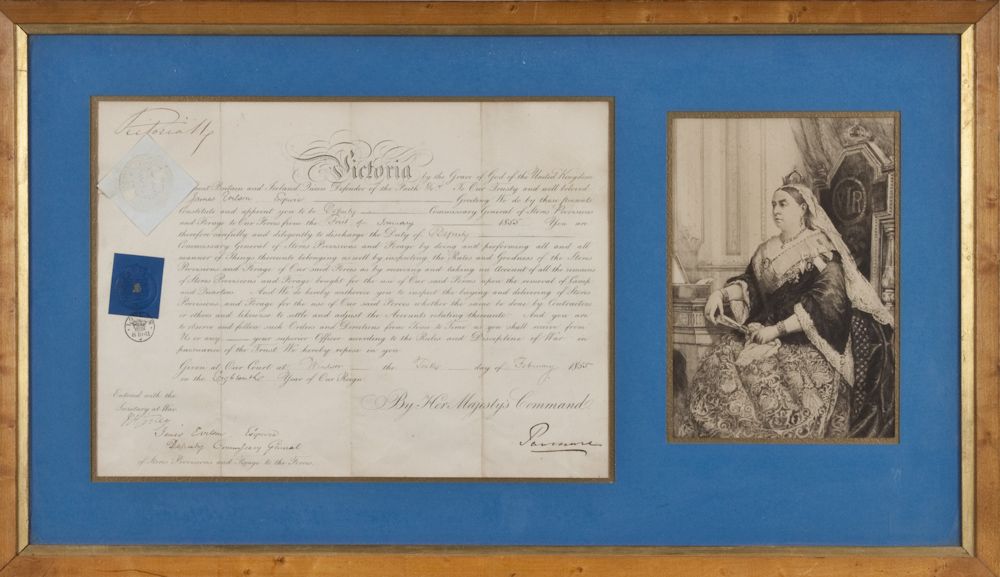 Victoria R
Victoria by the Grace of God of the United Kingdom
of Great Britain and Ireland Queen Defender of the Faith &c. To Our Trusty and well beloved
James Esquire Greeting We do by these presents
Constitute and appoint you to be Deputy Commissary General of Stores Provisions
and Forage to Our Forces from the First of January 1855 You are
therefore carefully and diligently to discharge the Duty of Deputy
Commissary General of Stores Provisions and Forage by doing and performing all and all
manner of Things thereunto belonging as well by inspecting the Rates and Goodness of the Stores
Provisions and Forage of Our said Forces as by receiving and taking an Account of all the remains
of Stores Provisions and Forage bought for the use of Our said Forces upon the removal of Camp
and Quarters And We do hereby authorise you to inspect the buying and delivering of Stores
Provisions and Forage for the use of Our said Forces whether the same be done by Contractors
or others and likewise to settle and adjust the Accounts relating thereunto And you are
to observe and follow such Orders and Directions from Time to Time as you shall receive from
Us or any your superior Officer according to the Rules and Discipline of War in
pursuance of the Trust We hereby repose in you
Given at Our Court at Windsor the day of February 1855
in the Eighteenth Year of Our Reign
By Her Majesty's Command
Panmure
Entered with the
Secretary at War
James Esquire
Deputy Commissary General
of Stores Provisions and Forage to the Forces.